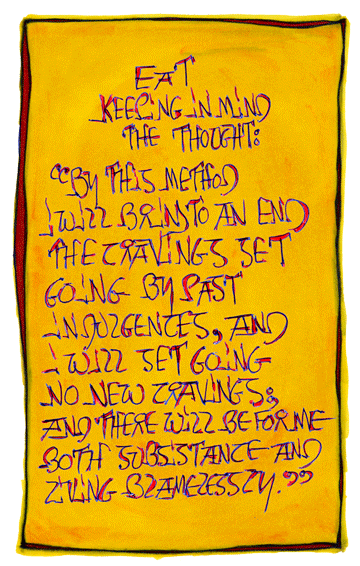 EAT
KEEPING IN MIND
THE THOUGHT:
"BY THIS METHOD
I WILL BRING TO AN END
THE CRAVINGS SET
GOING BY PAST
INDULGENCES, AND
I WILL SET GOING
NO NEW CRAVINGS;
AND THERE WILL BE FOR ME
BOTH SUBSISTANCE AND
LIVING BLAMELESSLY."